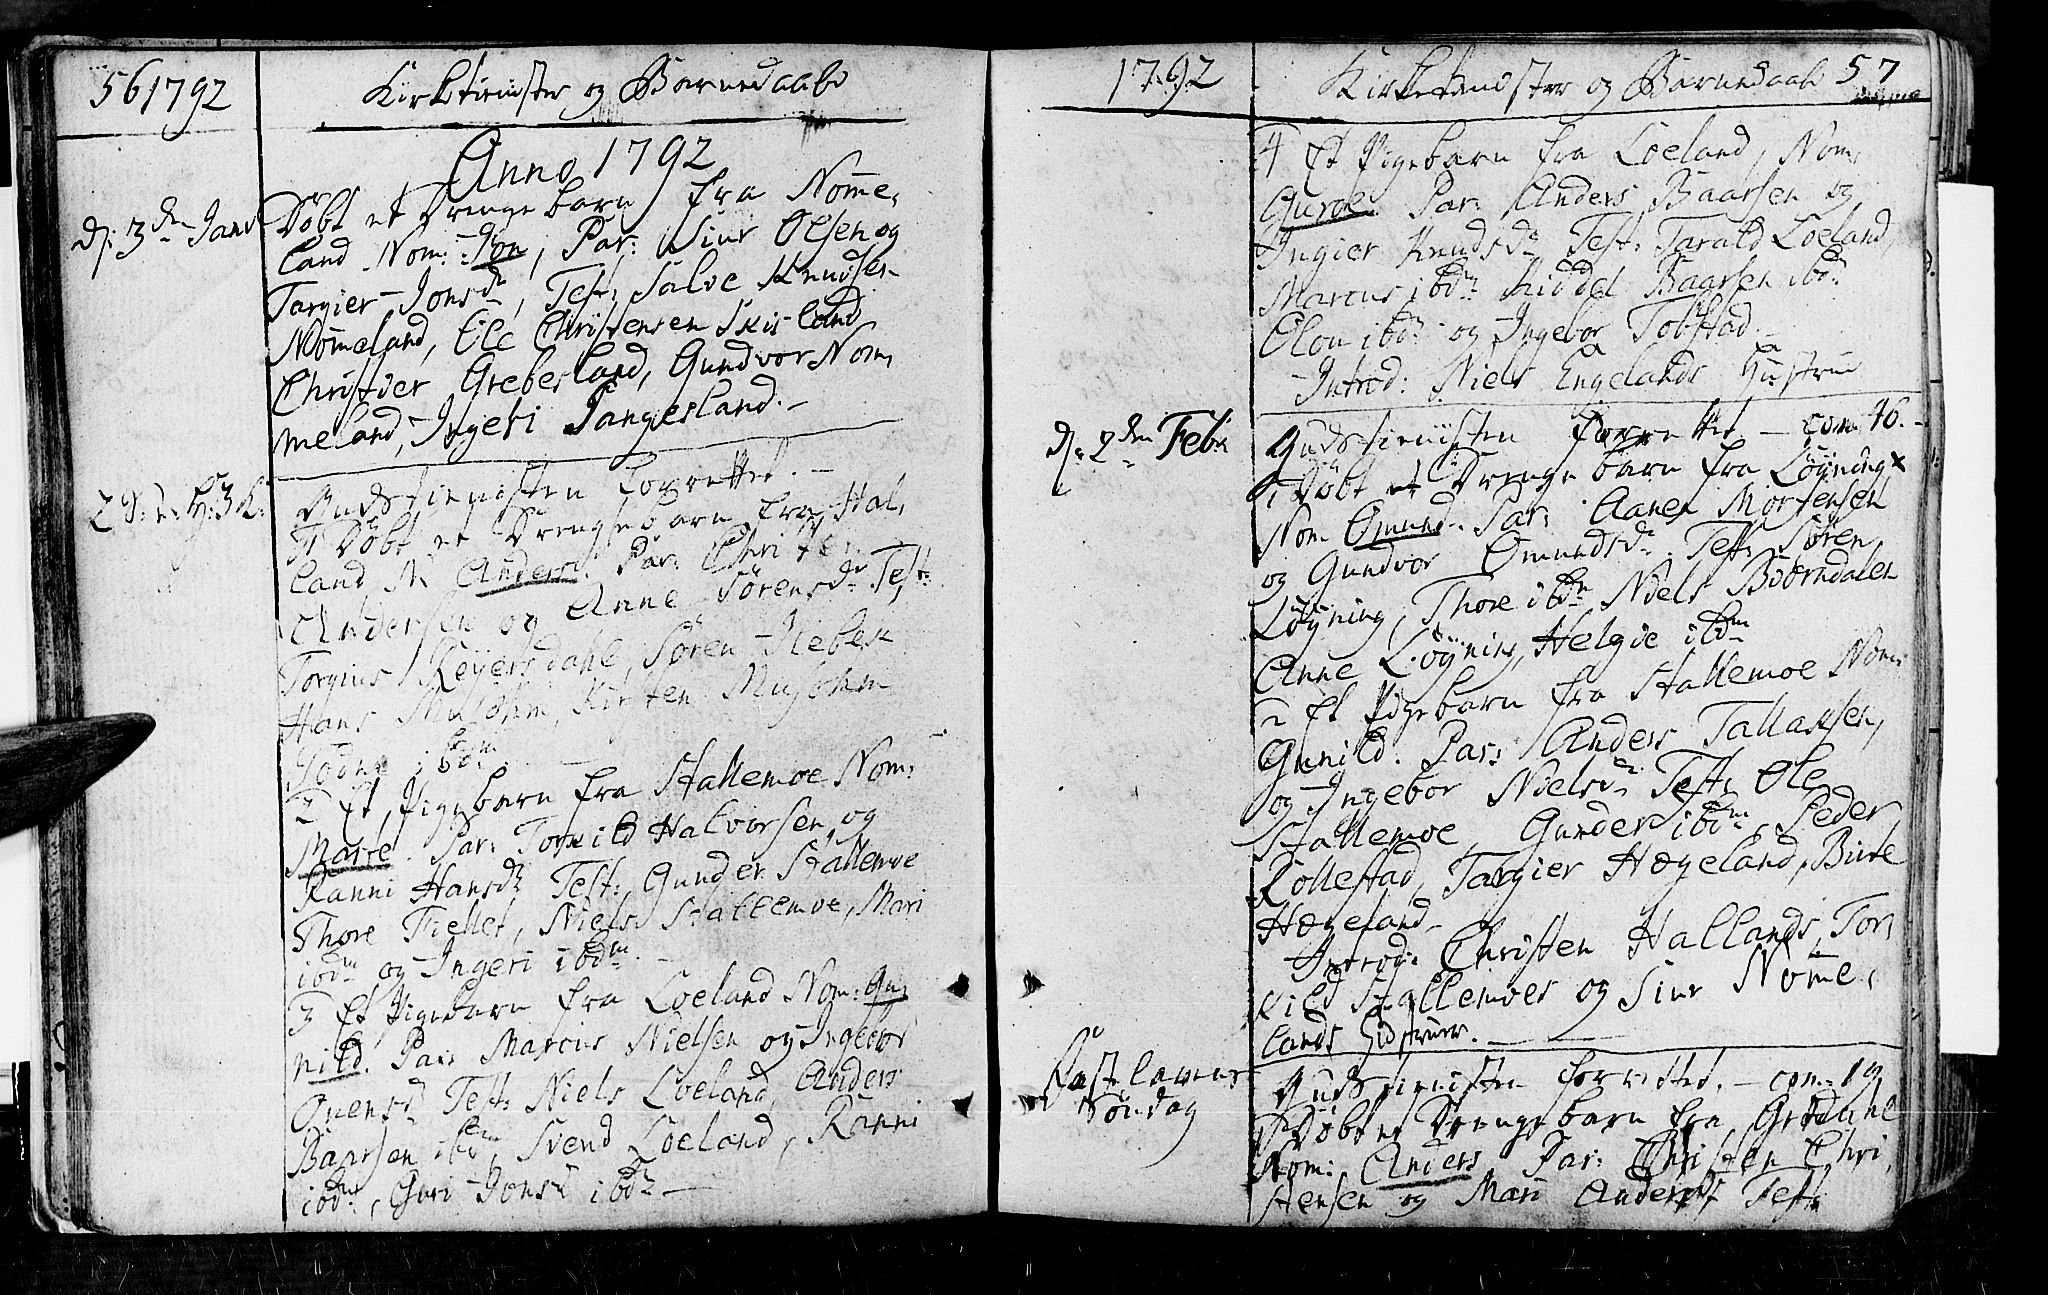 56 1792 Kirketienister og Barnedaab
Anno 1792
d: 3den Janv Döbt et Drengebarn fra Nomme,
land Nom: Jon, Par: Siur Olsen og
Targier Jonsdr, Test: Salve Knudsen
Nommeland, Ole Christensen Skisland
Christier Grebesland, Gundvor Nom,
meland, Ingeri Pangesland.
2 S: e: H: 3 K: Gudstienisten forrettet.
1 Döbt et Drengebarn fra Hal,
land, N: Anders. Par: Christen
Andersen og Anne Sörensdr Test:
Torgius Reyersdahl, Sören
Hans, Kirsten
ibdm
2 Et Pigebarn fra Stallemoe Nom:
Marte. Par: Torkild Halvorsen og
Ranni Hansdr Test: Gunder Stallemoe
Thore Fiellet, Niels Stallemoe, Mari
ibdm og Ingeri ibdm.
3 Et Pigebarn fra Loeland Nom: Gu,
nild. Par: Marcus Nielsen og Ingebor
Ovensdr Test: Niels Loeland, Anders
Baarsen ibdm, Svend Loeland, Ranni
ibdm, Guri Jonsdr ibdm
1792 Kirketienster og Barnedaab 57
4 Et Pigebarn fra Loeland, Nom:
Guroe. Par: Anders Baarsen og
Ingier Knudsdr Test: Tarald Loeland,
Marcus ibdm Baarsen ibdm
ibdm og Ingebor Tobstad.
Introd: Niels Engelands Hustrue
d: 2den Febr Gudstienisten forrettet com: 46.
1 Döbt et Drengebarn fra Löyning x
Nom Omund. Par: Aanen Mortensen
og Gundvor Omundsdr. Test: Sören
Löyning, Thore ibdm Niels Biörndalen
Anne Löyning, Helgie ibdm
2 Et Pigebarn fra Stallemoe Nom:
Gunild. Par: Anders Tallaksen,
og Ingebor Nielsdr Test: Ole
Stallemoe, Gunder ibdm, Peder
Rollestad, Targier Hægeland, Birte
Hægeland
Introd: Christen Hallands, Tor,
kild Stallemoes og Siur Nomme,
lands Hustruer.
Fastelavns Gudstienisten forrettet. com: 19
Söndag 1 Döbt et Drengebarn fra Grödahl
Nom: Anders Par: Christen Chri,
stensen og Mari Andersd Test: